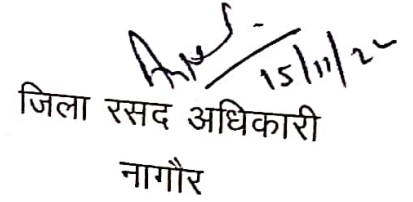 15/11/22
जिला रसद अधिकारी
नागौर